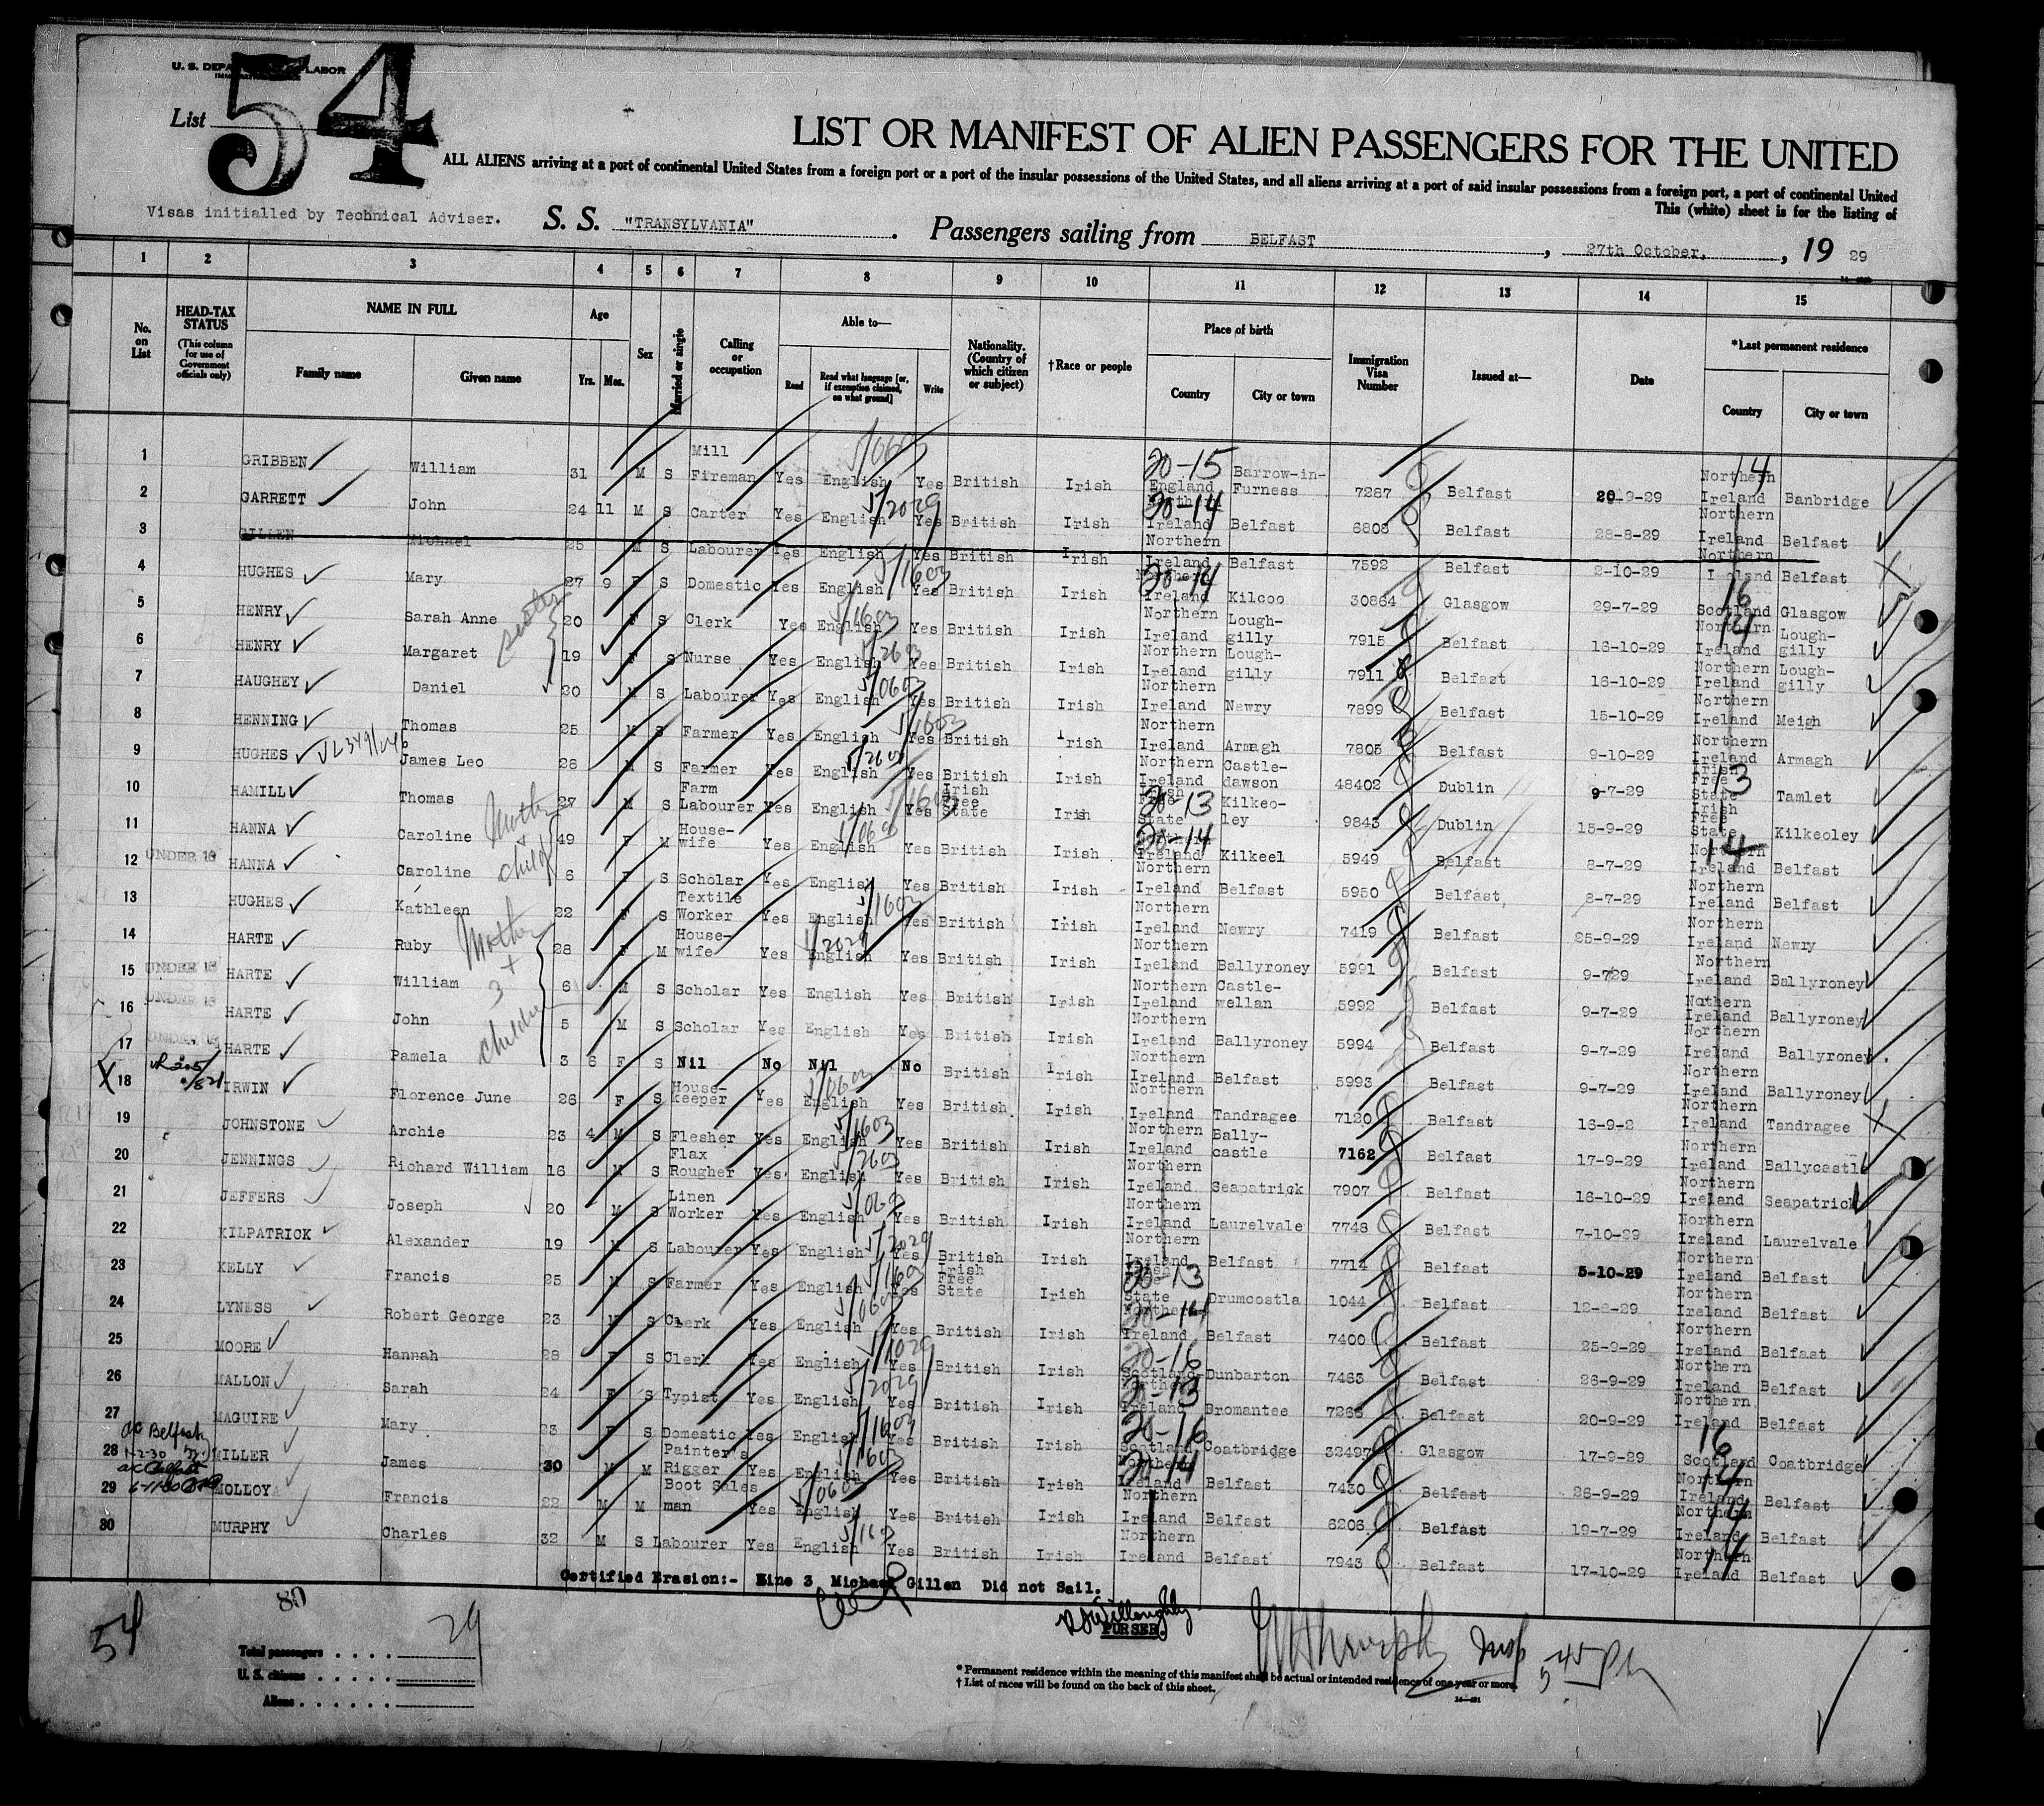 U. S. DEPARTMENT OF LABOR
List 54
LIST OR MANIFEST OF ALIEN PASSENGERS FOR THE UNITED
ALL ALIENS arriving at a port of continental United States from a foreign port or a port of the insular possessions of the United States, and all aliens arriving at a port of said insular possessions from a foreign port, a port of continental United
This (white) sheet is for the listing of
Visas initialled by Technical Adviser. S. S. "TRANSYLVANIA" . Passengers sailing from BELFAST , 27th October, , 19 29
1 2 3 4 5 6 7 8 9 10 11 12 13 14 15
No. on List HEAD-TAX STATUS (This column for use of Government officials only) NAME IN FULL Family name Given name Age Yrs. Mos. Sex Married or single Calling or occupation Able to— Read Read what language [or, if exemption claimed, on what ground] Write Nationality. (Country of which citizen or subject) †Race or people Place of birth Country City or town Immigration Visa Number Issued at— Date *Last permanent residence Country City or town
1 GRIBBEN William 31 M S Mill Fireman Yes English Yes British Irish England Barrow-in-Furness 7287 Belfast 20-9-29 Northern Ireland Banbridge
2 GARRETT John 24 11 M S Carter Yes English Yes British Irish Northern Ireland Belfast 6808 Belfast 28-8-29 Northern Ireland Belfast
3 GILLEN Michael 25 M S Labourer Yes English Yes British Irish Northern Ireland Belfast 7592 Belfast 2-10-29 Northern Ireland Belfast
4 HUGHES Mary 27 9 F S Domestic Yes English Yes British Irish Northern Ireland Kilcoo 30864 Glasgow 29-7-29 Scotland Glasgow
5 HENRY Sarah Anne 20 F S Clerk Yes English Yes British Irish Northern Ireland Lough-gilly 7915 Belfast 16-10-29 Northern Ireland Lough-gilly
6 HENRY Margaret 19 F S Nurse Yes English Yes British Irish Northern Ireland Lough-gilly 7911 Belfast 16-10-29 Northern Ireland Lough-gilly
7 HAUGHEY Daniel 20 M S Labourer Yes English Yes British Irish Northern Ireland Newry 7899 Belfast 15-10-29 Northern Ireland Meigh
8 HENNING Thomas 25 M S Farmer Yes English Yes British Irish Northern Ireland Armagh 7805 Belfast 9-10-29 Northern Ireland Armagh
9 HUGHES James Leo 28 M S Farmer Yes English Yes British Irish Northern Ireland Castle-dawson 48402 Dublin 9-7-29 Irish Free State Tamlet
10 HAMILL Thomas 27 M S Farm Labourer Yes English Yes Irish Free State Irish Irish Free State Kilkeo-ley 9843 Dublin 15-9-29 Irish Free State Kilkeoley
11 HANNA Caroline Mother + child 49 F M House-wife Yes English Yes British Irish Northern Ireland Kilkeel 5949 Belfast 8-7-29 Northern Ireland Belfast
12 UNDER 16 HANNA Caroline 6 F S Scholar Yes English Yes British Irish Northern Ireland Belfast 5950 Belfast, 8-7-29 Northern Ireland Belfast
13 HUGHES Kathleen 22 F S Textile Worker Yes English Yes British Irish Northern Ireland Newry 7419 Belfast 25-9-29 Northern Ireland Newry
14 HARTE Ruby Mother + 3 children 28 F M House-wife Yes English Yes British Irish Northern Ireland Ballyroney 5991 Belfast 9-729 Northern Ireland Ballyroney
15 UNDER 16 HARTE William 6 M S Scholar Yes English Yes British Irish Northern Ireland Castle-wellan 5992 Belfast 9-7-29 Northern Ireland Ballyroney
16 UNDER 16 HARTE John 5 M S Scholar Yes English Yes British Irish Northern Ireland Ballyroney 5994 Belfast 9-7-29 Northern Ireland Ballyroney
17 UNDER 16 HARTE Pamela 3 6 F S Nil No Nil No British Irish Northern Ireland Belfast 5993 Belfast 9-7-29 Northern Ireland Ballyroney
X 18 IRWIN Florence June 26 F S House-keeper Yes English Yes British Irish Northern Ireland Tandragee 7120 Belfast 16-9-2 Northern Ireland Tandragee
19 JOHNSTONE Archie 23 4 M S Flesher Yes English Yes British Irish Northern Ireland Bally-castle 7162 Belfast 17-9-29 Northern Ireland Ballycastle
20 JENNINGS Richard William 16 M S Flax Rougher Yes English Yes British Irish Northern Ireland Seapatrick 7907 Belfast 16-10-29 Northern Ireland Seapatrick
21 JEFFERS Joseph 20 M S Linen Worker Yes English Yes British Irish Northern Ireland Laurelvale 7748 Belfast 7-10-29 Northern Ireland Laurelvale
22 KILPATRICK Alexander 19 M S Labourer Yes English Yes British Irish Northern Ireland Belfast 7714 Belfast 5-10-29 Northern Ireland Belfast
23 KELLY Francis 25 M S Farmer Yes English Yes Irish Free State Irish Irish Free State Drumcostla 1044 Belfast 12-8-29 Northern Ireland Belfast
24 LYNESS Robert George 23 M S Clerk Yes English Yes British Irish Northern Ireland Belfast 7400 Belfast 25-9-29 Northern Ireland Belfast
25 MOORE Hannah 28 F S Clerk Yes English Yes British Irish Scotland Dunbarton 7463 Belfast 26-9-29 Northern Ireland Belfast
26 MALLON Sarah 24 F S Typist Yes English Yes British Irish Northern Ireland Bromantee 7266 Belfast 20-9-29 Northern Ireland Belfast
27 MAGUIRE Mary 23 F S Domestic Yes English Yes British Irish Scotland Coatbridge 32497 Glasgow 17-9-29 Scotland Coatbridge
28 MILLER James 30 M M Painter's Rigger Yes English Yes British Irish Northern Ireland Belfast 7430 Belfast 26-9-29 Northern Ireland Belfast
29 MOLLOY Francis 22 M M Boot Sales man Yes English Yes British Irish Northern Ireland Belfast 6206 Belfast 19-7-29 Northern Ireland Belfast
30 MURPHY Charles 32 M S Labourer Yes English Yes British Irish Northern Ireland Belfast 7943 Belfast 17-10-29 Northern Ireland Belfast
Certified Erasion:- Line 3 Michael Gillen Did not Sail.
PURSER.
54
Total passengers . . . . 29
U. S. citizens . . . . .
Aliens . . . . . .
* Permanent residence within the meaning of this manifest shall be actual or intended residence of one year or more.
† List of races will be found on the back of this sheet.